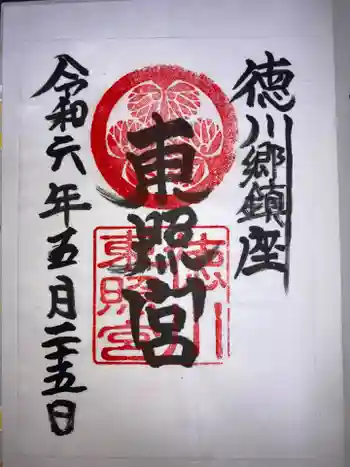 徳川郷鎮座
東照宮
徳川東照宮
令和六年五月二十五日